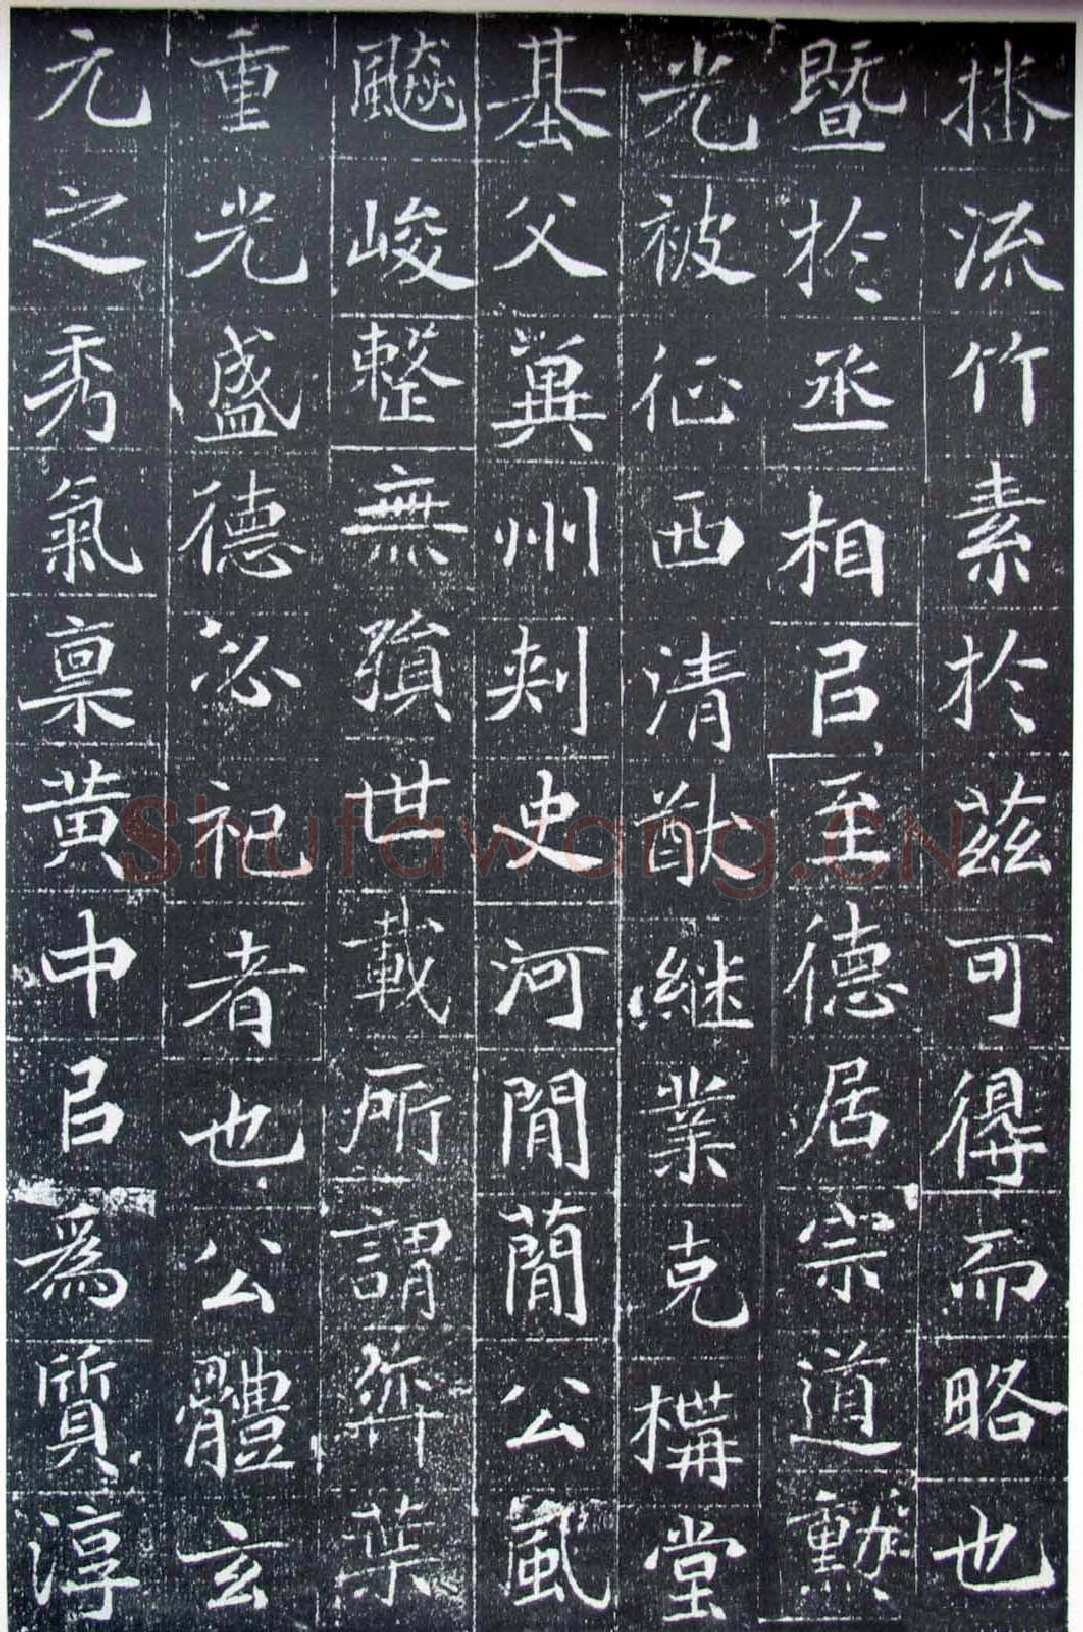 播流竹素於茲可得而略也
暨於丞相㠯至德居宗道勲
光被征西清猷継業克構堂
基父冀州刺史河閒簡公風
飈峻整無殞世載所謂弈葉
重光盛德必祀者也公體玄
元之秀氣稟黃中㠯爲質淳
Shufawang.CN